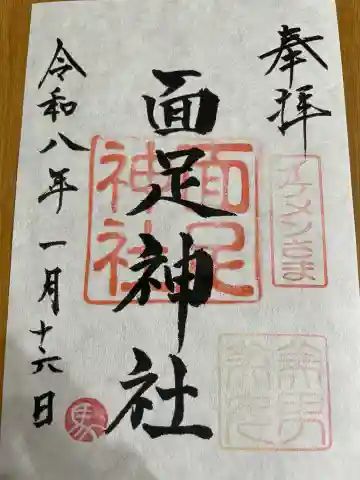 奉拝
イケメンさま
面足神社
面足神社
令和八年一月十六日
馬